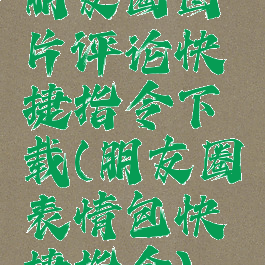 朋友圈图
片评论快
捷指令下
载(朋友圈
表情包快
捷指令)